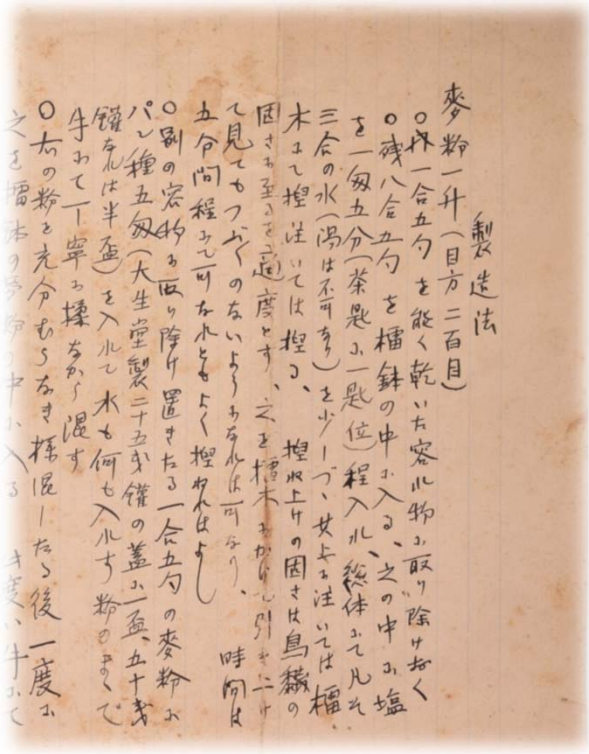 製造法
麥粉一升(目方二百目)
○内一合五勺を能く乾いた容れ物ニ取り除けおく
○残八合五勺を擂鉢の中ニ入る、之の中ニ塩
を一匁五分(茶匙ニ一匙位)程入れ、総体にて凡そ
三合の水(湯は不可なり)を少しづゝ其上に注いては擂
木にて捏注いては捏る、捏ね上けの固さは鳥黐の
固さに至るを適度とす、之を擂木にかけて引き上け
て見てもつぶつぶのないようになれは可なり、時間は
五分間程にて可なれともよく捏ねれはよし
○別の容物に取り除け置きたる一合五勺の麥粉に
パン種五匁(大生堂製二十五匁鑵の蓋ニ一盃、五十匁
鑵なれは半盃)を入れて水も何も入れす粉のまゝで
手にて丁寧に揉なから混す
○右の粉を充分むらなき様混したる後一度に
之を擂鉢の 中に入る 手にて